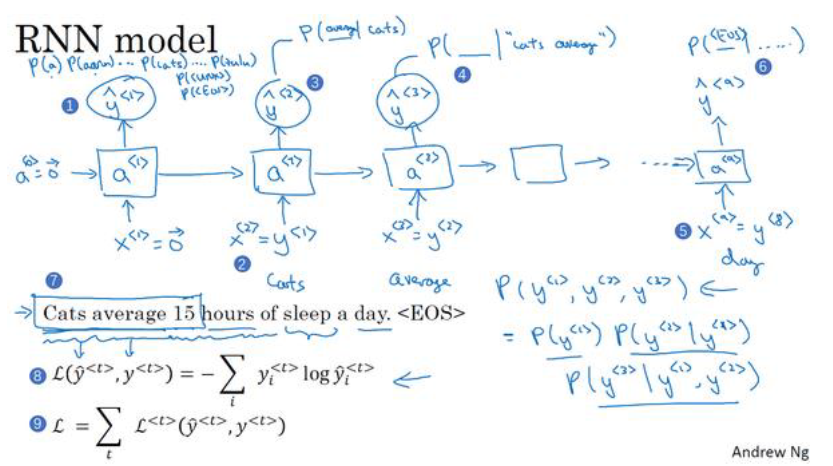 RNN model
P(a) P(aaron) ... P(cats) .... P(zulu)
P(<UNK>)
P(<EOS>)
P(average | cats)
P( __ | "cats average")
P(<EOS> | .....)
1 ŷ<1>
3 ŷ<2>
4 ŷ<3>
6 ŷ<9>
a<0>=0⃗ → a<1> → a<2> → a<3> → → ....→ a<9>
x<1>=0⃗
2 x<2>=y<1>
x<3>=y<2>
5 x<9>=y<8>
Cats
average
day
7
→ Cats average 15 hours of sleep a day. <EOS>
P(y<1>, y<2>, y<3>) ←
= P(y<1>) P(y<2> | y<1>)
P(y<3> | y<1>, y<2>)
8 ℒ(ŷ<t>, y<t>) = − ∑i yi<t> log ŷi<t> ←
9 ℒ = ∑t ℒ<t>(ŷ<t>, y<t>)
Andrew Ng